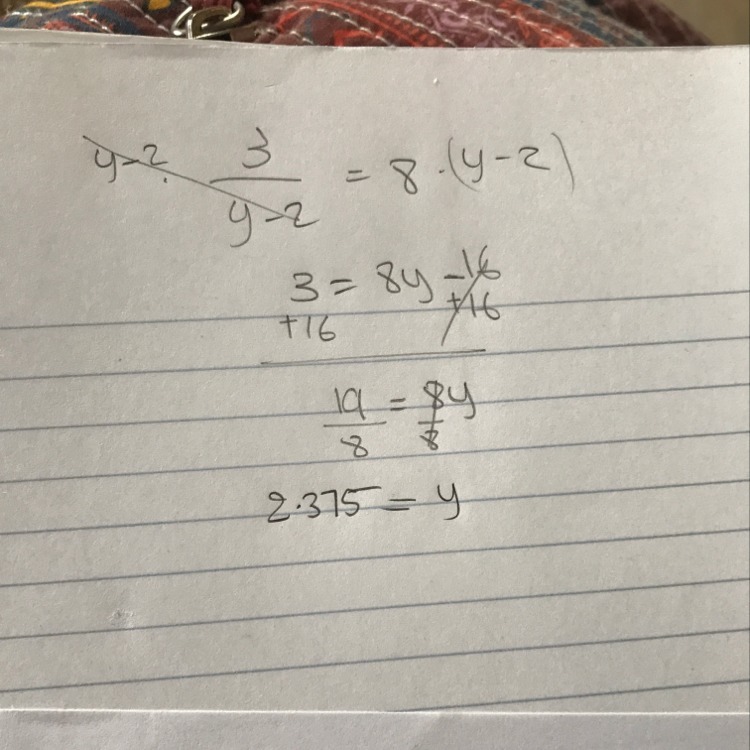 y-2 · 3/y-2 = 8 · (y-2)
3 = 8y -16
+16 +16
19/8 = 8y/8
2.375 = y